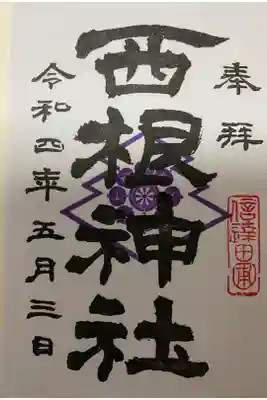 奉拜
西根神社
令和四年五月三日